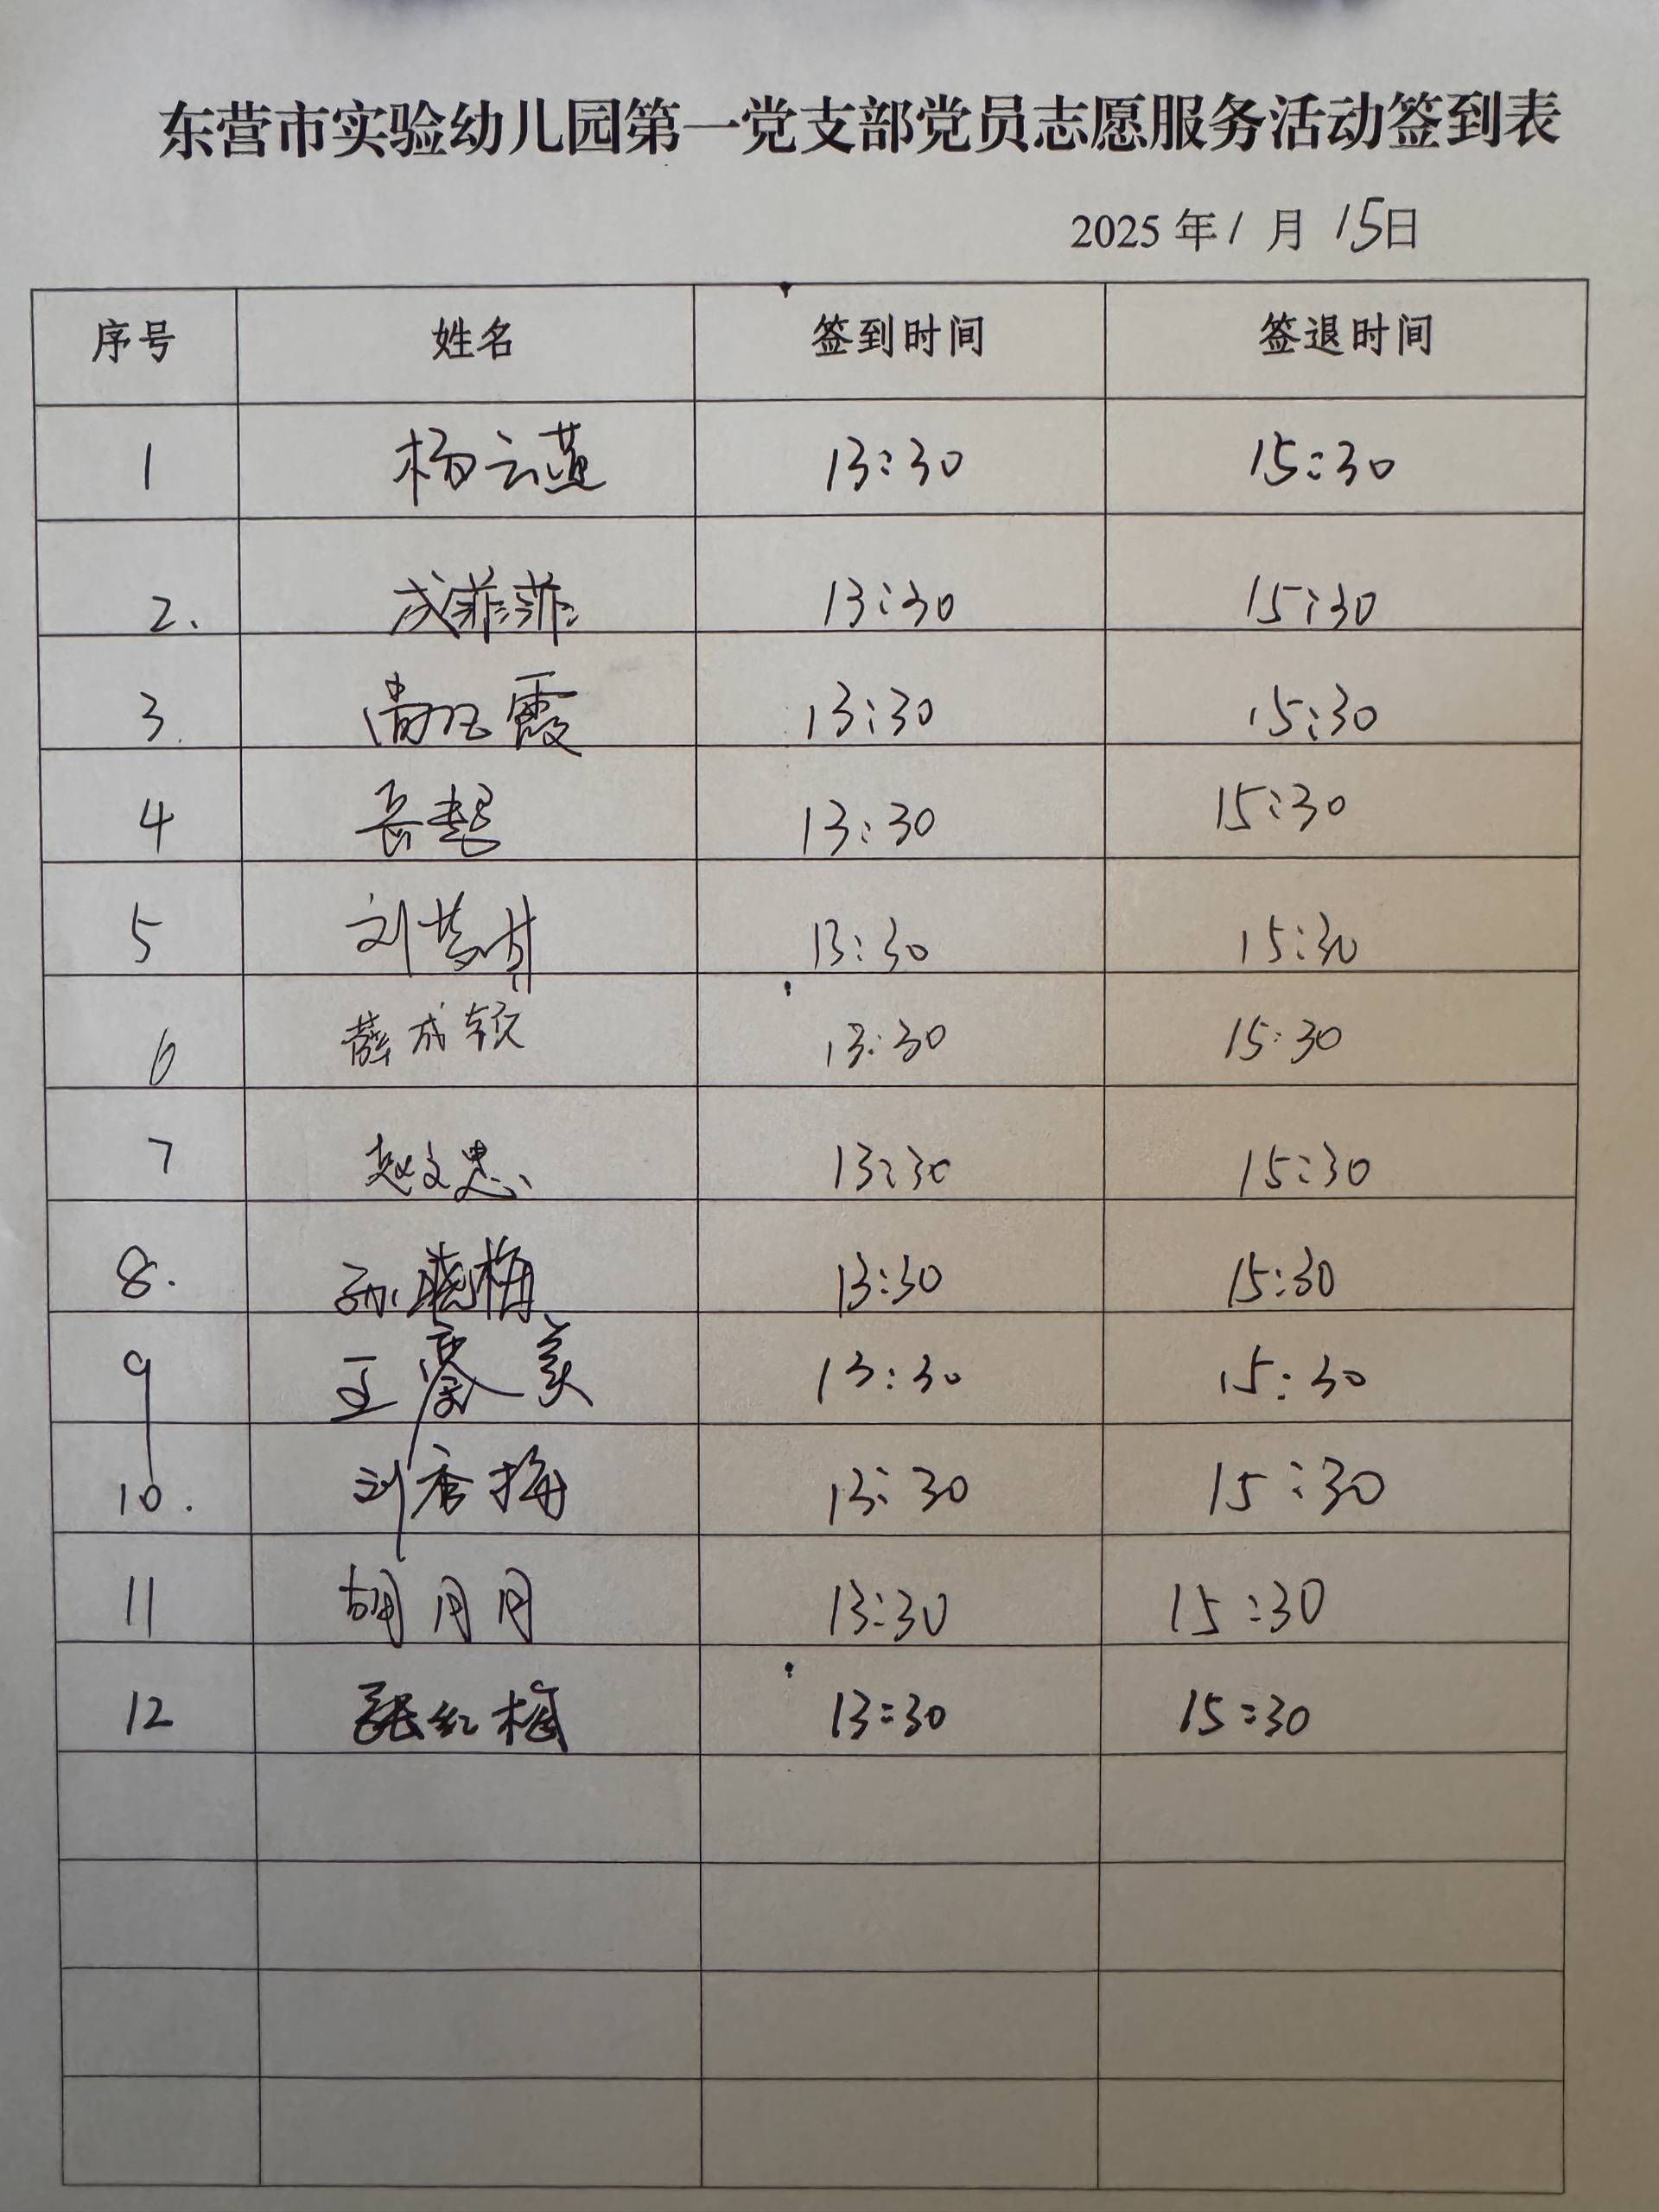 东营市实验幼儿园第一党支部党员志愿服务活动签到表
2025 年 1 月 15日
序号 姓名 签到时间 签退时间
1 杨云燕 13:30 15:30
2. 成菲菲 13:30 15:30
3. 霞 13:30 15:30
4 13:30 15:30
5 刘 13:30 15:30
6 薛成 13:30 15:30
7 赵文忠 13:30 15:30
8. 孙晓梅 13:30 15:30
9 王 美 13:30 15:30
10. 刘秀梅 13:30 15:30
11 胡月月 13:30 15:30
12 张红梅 13:30 15:30